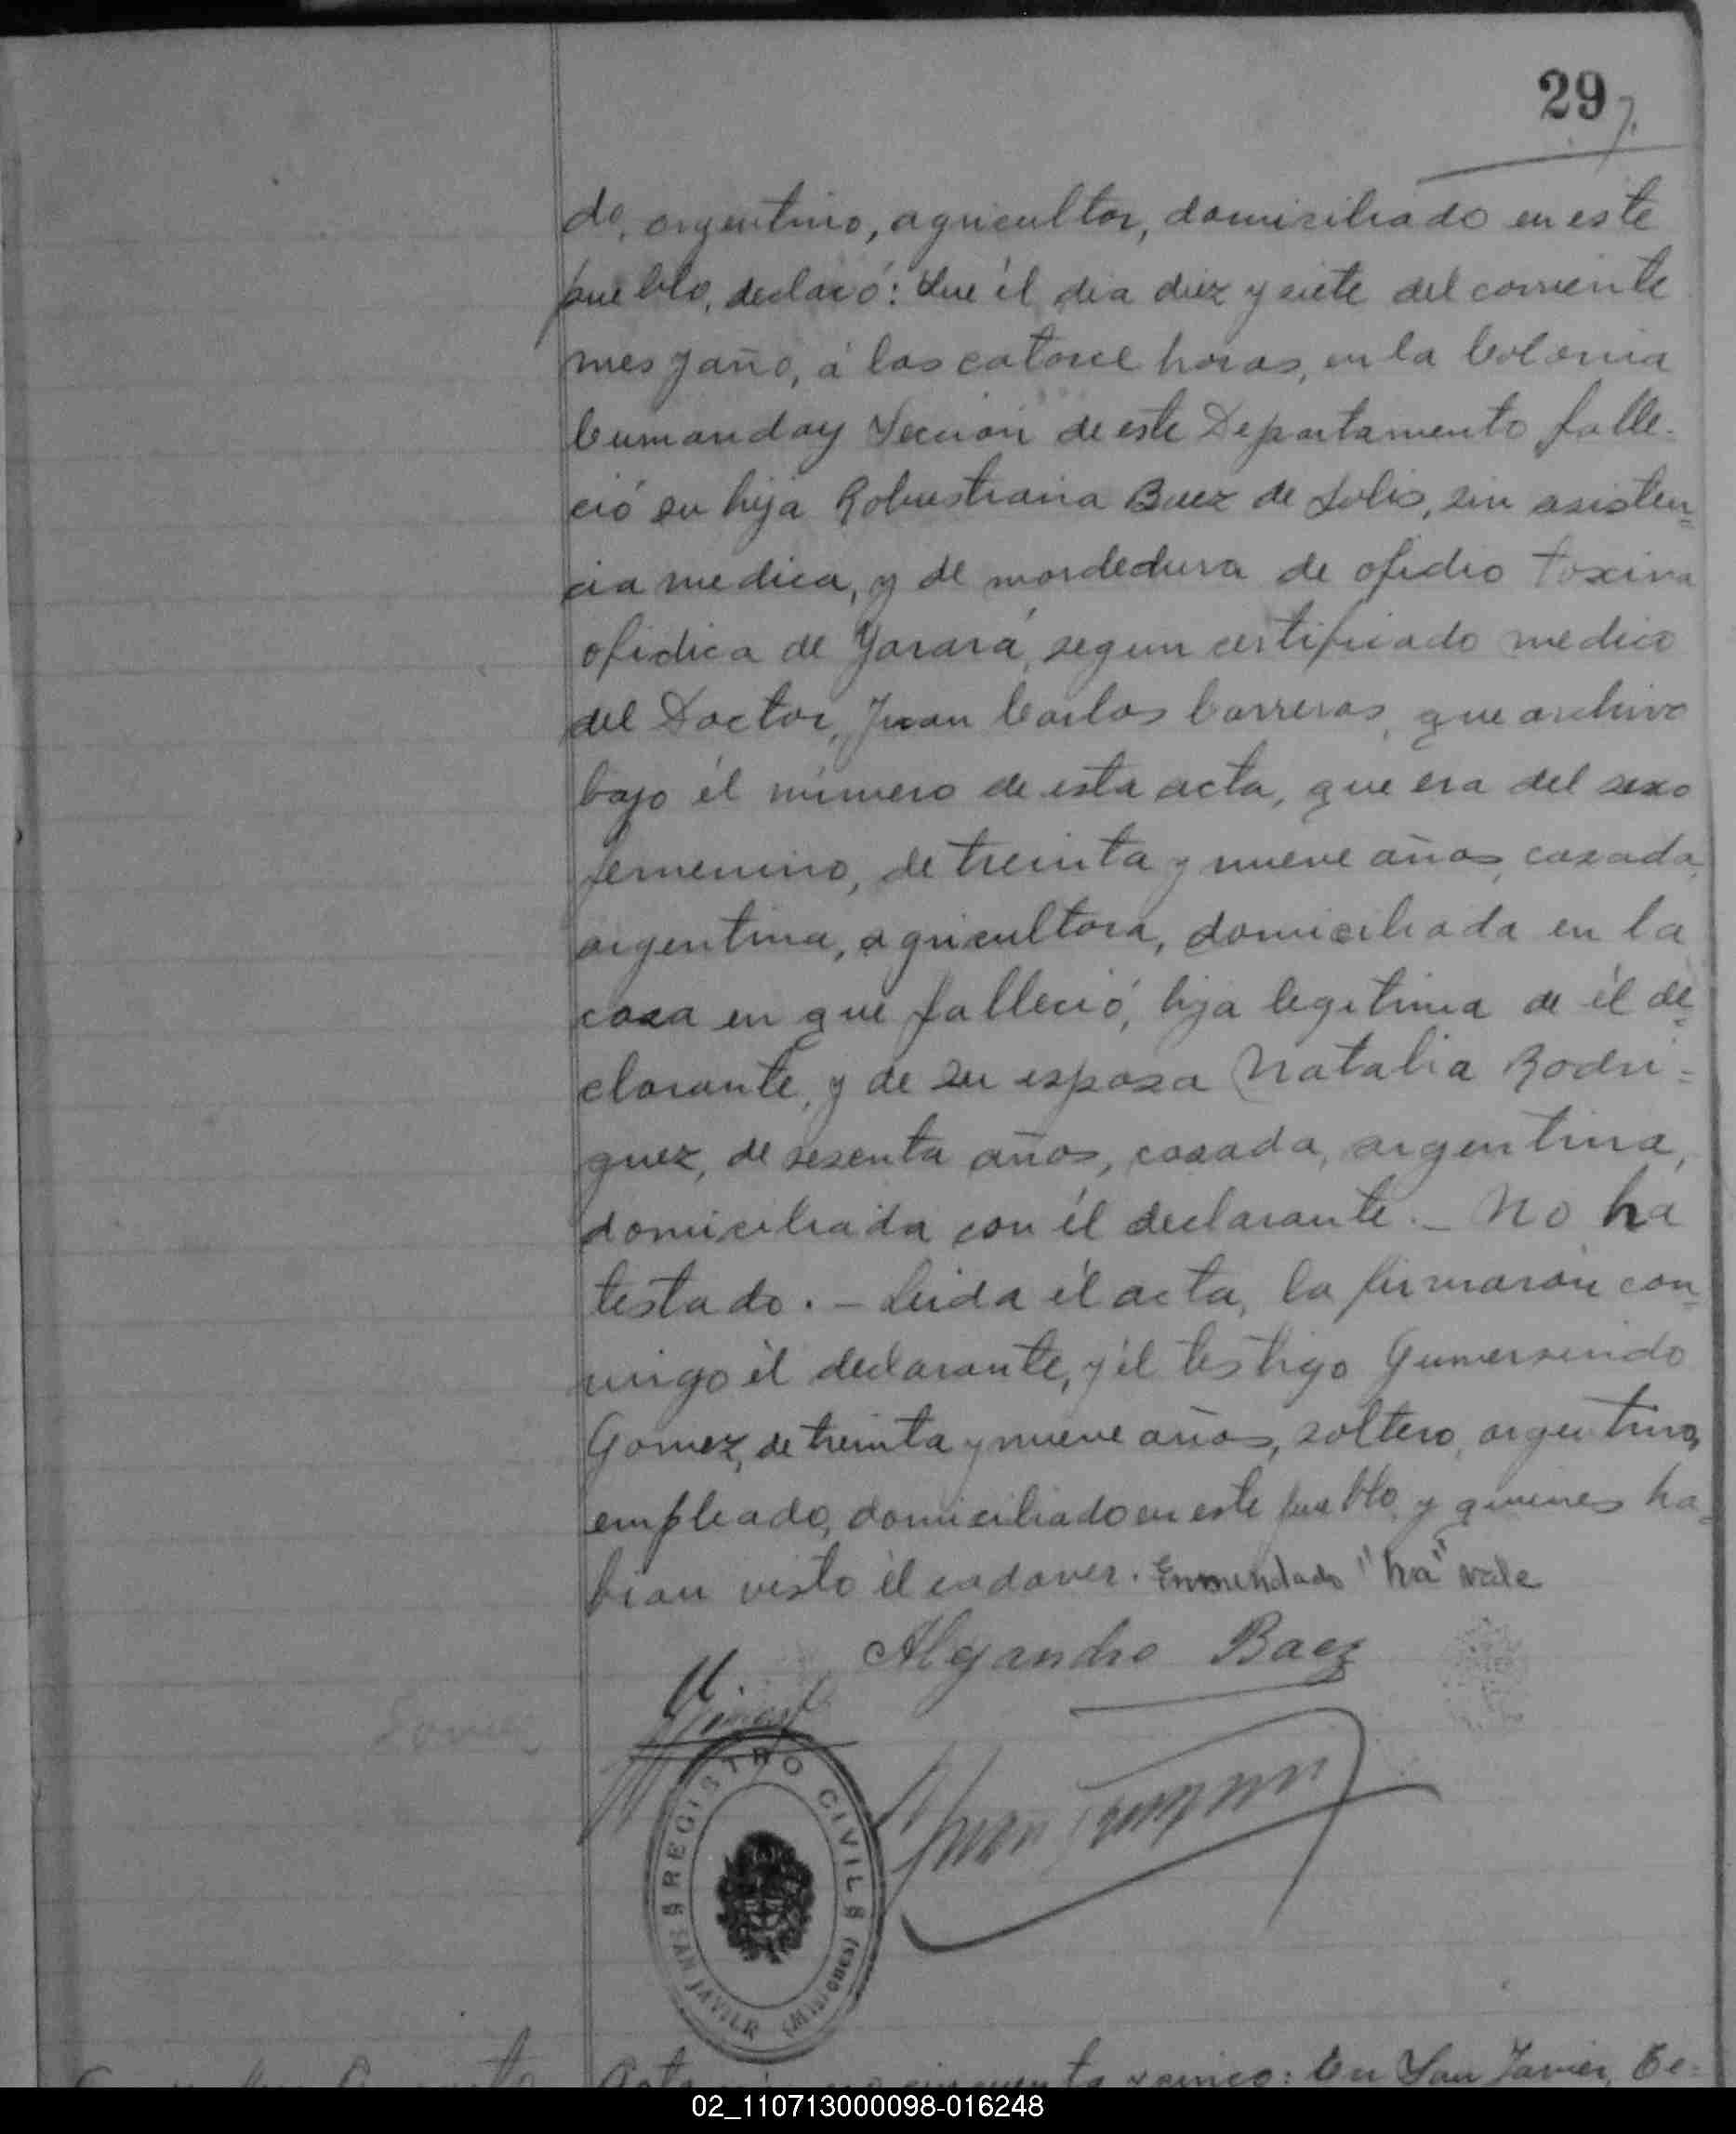 29
do, argentino, agricultor, domiciliado en este
pueblo, declaró: Que él dia diez y siete del corriente
mes y año, á las catorce horas, en la Colonia
Cumanday Seccion de este Departamento falle-
ció su hija Robustiana Baez de Solis, sin asisten=
cia medica, y de mordedura de ofidio toxina
ofidica de Yarará, segun certificado medico
del Doctor, Juan Carlos Carreras, que archivo
bajo él número de esta acta, que era del sexo
femenino, de treinta y nueve años, casada,
argentina, agricultora, domiciliada en la
casa en que falleció, hija legitima de él de=
clarante, y de su esposa Natalia Rodri=
guez, de sesenta años, casada, argentina,
domiciliada con él declarante.- No ha
testado.- Leida él acta, la firmaron con=
migo él declarante, y él testigo Gumersindo
Gomez, de treinta y nueve años, soltero, argentino,
empleado, domiciliado en este pueblo, y quienes ha=
bian visto él cadaver. Enmendado "ha" vale
Alejandro Baez
REGISTRO CIVIL
SAN JAVIER (Misiones)
Acta número cincuenta y cinco: En San Javier, Te-
02_110713000098-016248